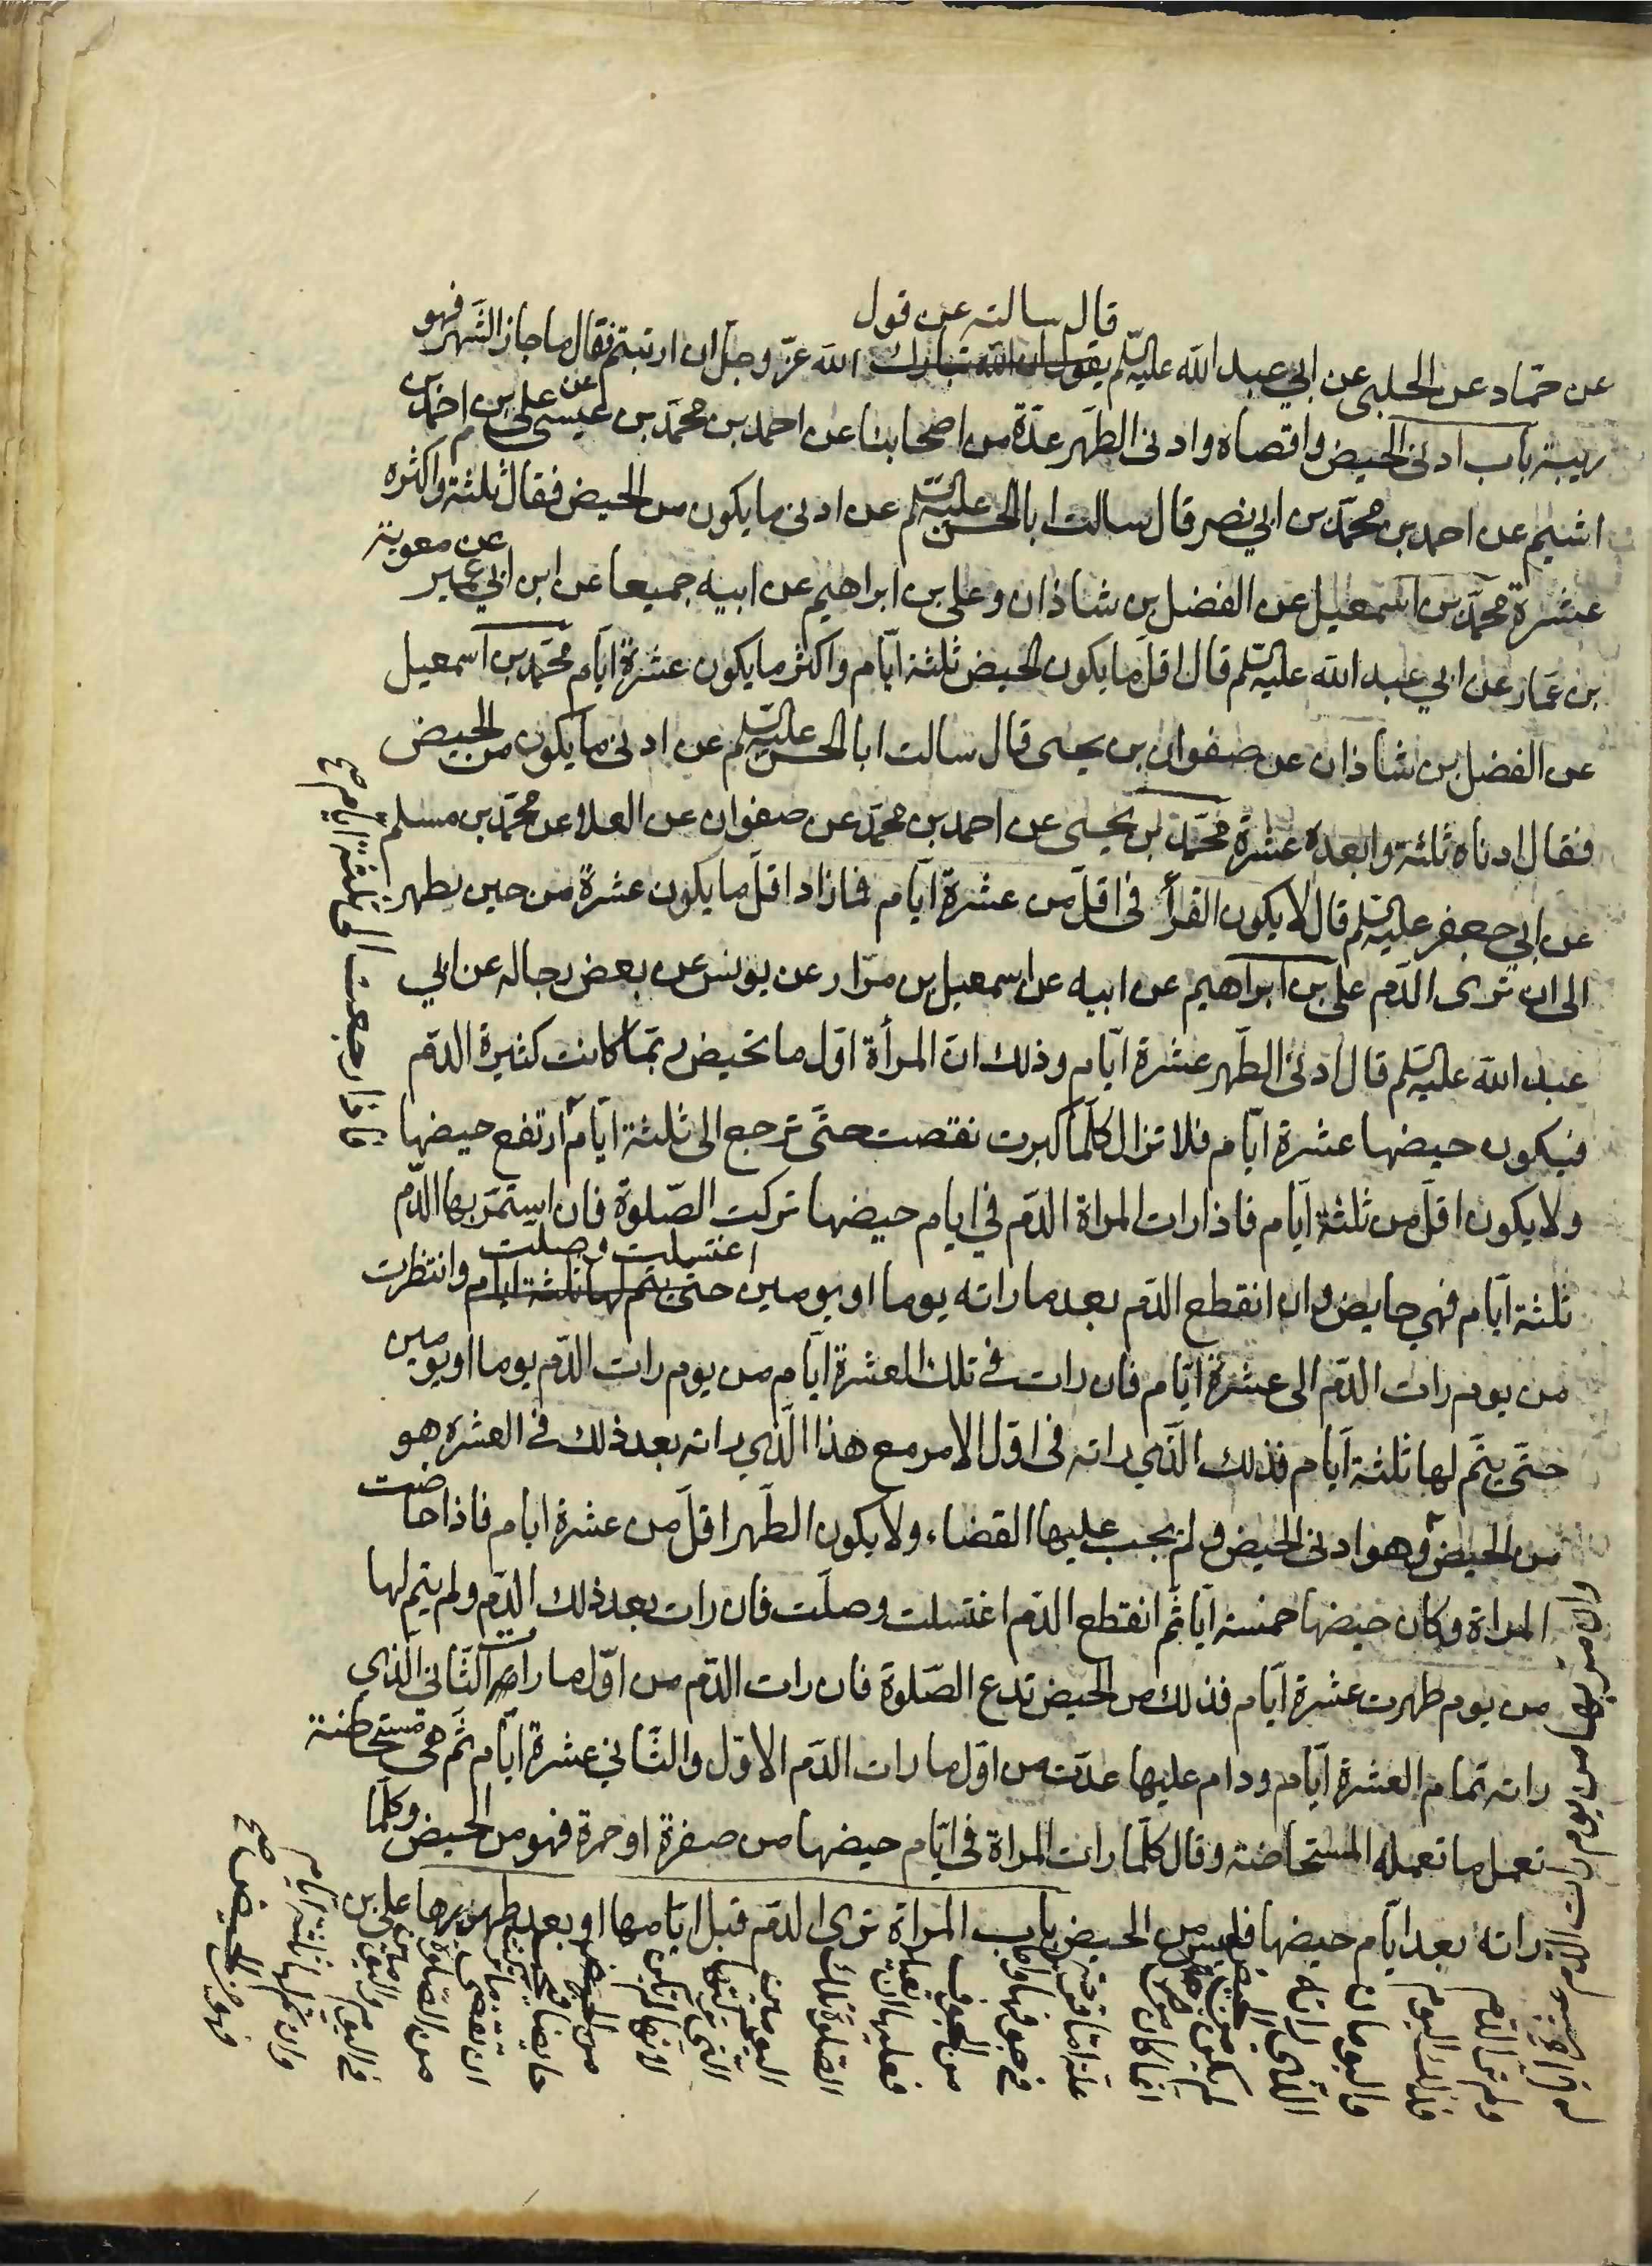 قال سالته عن قول
عن حمّاد عن الحلبى عن ابي عبد الله عليه السّلم يقول ان الله تبارك الله عزّ وجلّ ان ارتبتم فقال ما جاز الشّهر فهو
ريبة باب ادنى الحيض واقصاه وادنى الطّهر عدّة من اصحابنا عن احمد بن محمّد بن عيسى عن على بن احمد بن
اشيم عن احمد بن محمّد بن ابي نصر قال سالت ابا الحسن عليه السّلم عن ادنى ما يكون من الحيض فقال ثلثة واكثره
عشرة محمّد بن اسمعيل عن الفضل بن شاذان وعلى بن ابراهيم عن ابيه جميعا عن ابن ابي عمير عن معوية
بن عمّار عن ابي عبد الله عليه السّلم قال اقلّ ما يكون الحيض ثلثة ايّام واكثر ما يكون عشرة ايّام محمّد بن اسمعيل
عن الفضل بن شاذان عن صفوان بن يحيى قال سالت ابا الحسن عليه السّلم عن ادنى ما يكون من الحيض
فقال ادناه ثلثة وابعده عشرة محمّد بن يحيى عن احمد بن محمّد عن صفوان عن العلا عن محمّد بن مسلم
عن ابي جعفر عليه السّلم قال لا يكون القرأ فى اقلّ من عشرة ايّام فما زاد اقلّ ما يكون عشرة من حين يطهر
الى ان ترى الدّم على بن ابراهيم عن ابيه عن اسمعيل بن مرّار عن يونس عن بعض رجاله عن ابي
عبد الله عليه السّلم قال ادنى الطّهر عشرة ايّام وذلك انّ المرأة اوّل ما تحيض ربّما كانت كثيرة الدّم
فيكون حيضها عشرة ايّام فلا تزال كلّما كبرت نقصت حتّى ترجع الى ثلثة ايّام ارتفع حيضها
فاذا رجعت الى ثلثة ايّام صح
ولا يكون اقلّ من ثلثة ايّام فاذا رات المراة الدّم في ايام حيضها تركت الصّلوة فان استمرّ بها الدّم
ثلثة ايّام فهي حايض وان انقطع الدّم بعد ما راته يوما او يومين حتّى يتم لها ثلثة ايام وانتظرت
اغتسلت وصلت
من يوم رات الدّم الى عشرة ايّام فان رات في تلك العشرة ايّام من يوم رات الدّم يوما او يومين
حتّى يتمّ لها ثلثة ايّام فذلك الّذي راته فى اوّل الامر مع هذا الّذي راته بعد ذلك في العشره هو
من الحيض وهو ادنى الحيض ولم يجب عليها القضاء ولا يكون الطّهر اقلّ من عشرة ايام فاذا حاضت
المراة وكان حيضها خمسة ايّا ثمّ انقطع الدّم اغتسلت وصلّت فان رات بعد ذلك الدّم ولم يتم لها
من يوم طهرت عشرة ايّام فذلك من الحيض تدع الصّلوة فان رات الدّم من اوّل ما رات الثّاني الّذي
راته تمام العشرة ايّام ودام عليها عدّت من اوّل ما رات الدّم الاوّل والثّاني عشرة ايّام ثمّ هي مستحاضة
تعمل ما تعمله المستحاضة وقال كلّما رات المراة فى ايّام حيضها من صفرة او حمرة فهو من الحيض وكلّما
راته بعد ايّام حيضها فليس من الحيض باب المراة ترى الدّم قبل ايّامها او بعد طهرها على بن
وان مرّ بها من يوم رات الدّم عشرة
ولم تر الدّم
فذلك اليوم
واليومان
الّذى راته
لم يكن من الحيض
انما كان من
علة اما قرحة
في جوفها واما
من الجوف
فعليها ان تعيد
الصلوة تلك
اليومين
التى تركتها
لانها لم تكن
حايضا فيجب
ان تقضى ما تركت
من الصّلوة
في اليوم واليومين
وان تم لها ثلثة ايام
فهو من الحيض صح